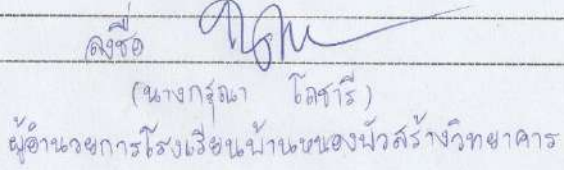 ลงชื่อ
(นางกรุณา โถชารี)
ผู้อำนวยการโรงเรียนบ้านหนองบัวสร้างวิทยาคาร